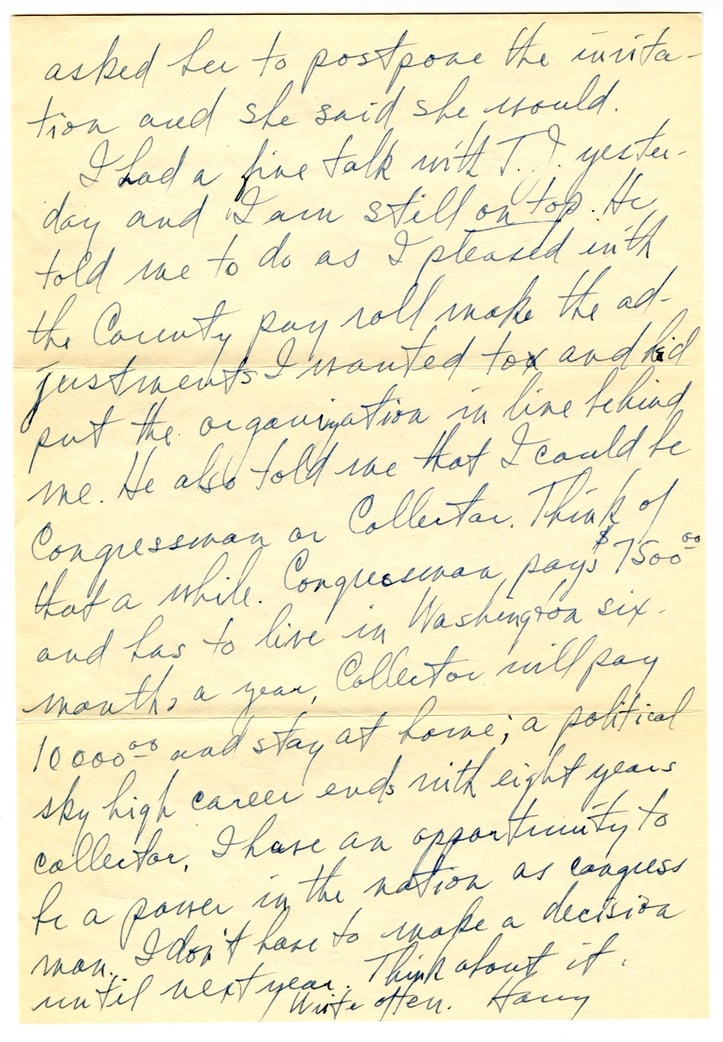 asked her to postpone the invita-
tion and she said she would.
I had a fine talk with T.J. yester-
day and I am still on top. He
told me to do as I pleased with
the County pay roll make the ad-
justments I wanted to and he'd
put the organization in line behind
me. He also told me that I could be
Congressman or Collector. Think of
that a while. Congressman pays $7500.00
and has to live in Washington six
months a year, Collector will pay
10000.00 and stay at home; a political
sky high career ends with eight years
collector. I have an opportunity to
be a power in the nation as congress
man. I don't have to make a decision
until next year. Think about it.
Write often. Harry